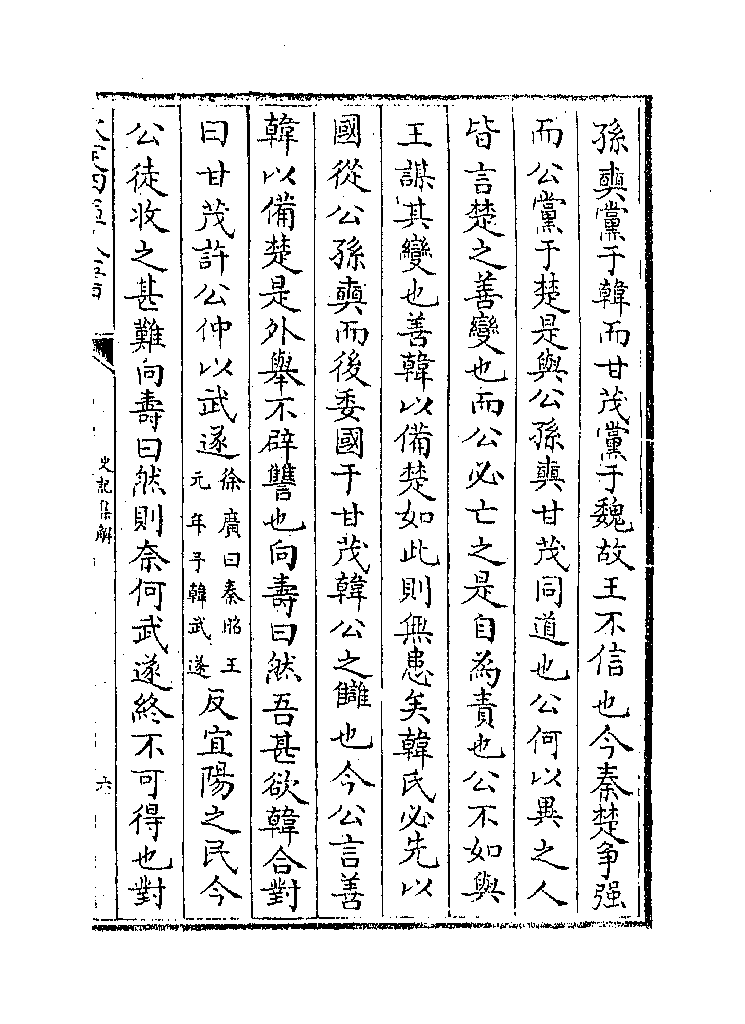 孫奭黨于韓而甘茂黨于魏故王不信也今秦楚爭强
而公黨于楚是與公孫奭甘茂同道也公何以異之人
皆言楚之善變也而公必亡之是自為責也公不如與
王謀其變也善韓以備楚如此則無患矣韓氏必先以
國從公孫奭而後委國于甘茂韓公之讎也今公言善
韓以備楚是外舉不辟讐也向壽曰然吾甚欲韓合對
曰甘茂許公仲以武遂徐廣曰秦昭王元年予韓武遂反宜陽之民今
公徒收之甚難向壽曰然則奈何武遂終不可得也對
史記集解
六